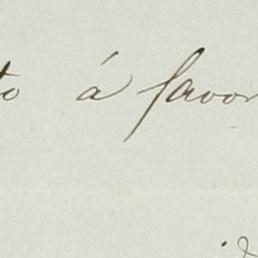 to á favor